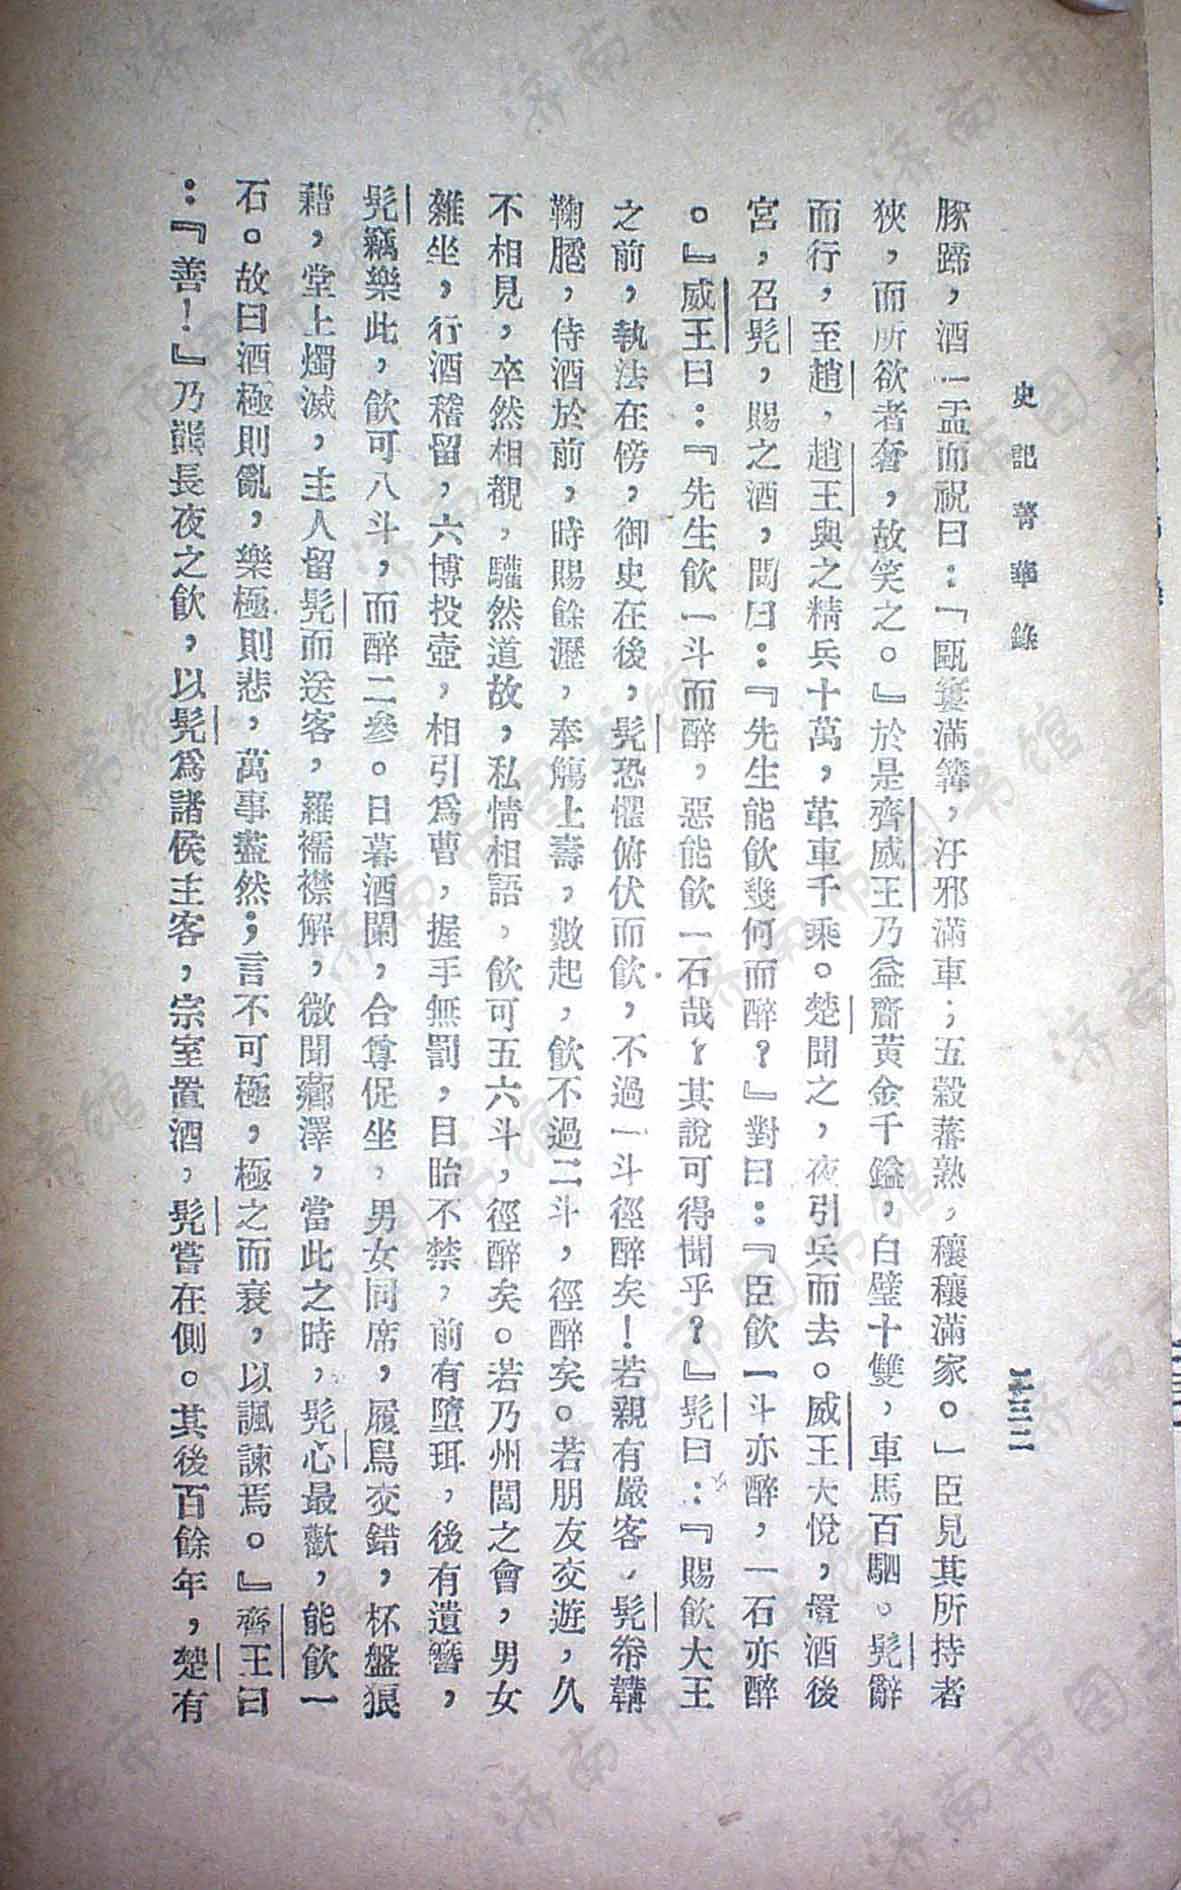 史記菁華錄
豚蹄，酒一盂而祝曰：「甌窶滿篝，汙邪滿車；五穀蕃熟，穰穰滿家。」臣見其所持者
狹，而所欲者奢，故笑之。』於是齊威王乃益齎黃金千鎰，白璧十雙，車馬百駟。髡辭
而行，至趙，趙王與之精兵十萬，革車千乘。楚聞之，夜引兵而去。威王大悅，置酒後
宮，召髡，賜之酒，問曰：『先生能飲幾何而醉？』對曰：『臣飲一斗亦醉，一石亦醉
。』威王曰：『先生飲一斗而醉，惡能飲一石哉？其說可得聞乎？』髡曰：『賜飲大王
之前，執法在傍，御史在後，髡恐懼俯伏而飲，不過一斗徑醉矣！若親有嚴客，髡帣韝
鞠䠆，侍酒於前，時賜餘瀝，奉觴上壽，數起，飲不過二斗，徑醉矣。若朋友交遊，久
不相見，卒然相覩，驩然道故，私情相語，飲可五六斗，徑醉矣。若乃州閭之會，男女
雜坐，行酒稽留，六博投壺，相引爲曹，握手無罰，目眙不禁，前有墮珥，後有遺簪，
髡竊樂此，飲可八斗，而醉二參。日暮酒闌，合尊促坐，男女同席，履舃交錯，杯盤狼
藉，堂上燭滅，主人留髡而送客，羅襦襟解，微聞薌澤，當此之時，髡心最歡，能飲一
石。故曰酒極則亂，樂極則悲，萬事盡然；言不可極，極之而衰，以諷諫焉。』齊王曰
：『善！』乃罷長夜之飲，以髡爲諸侯主客，宗室置酒，髡嘗在側。其後百餘年，楚有
济南市图书馆